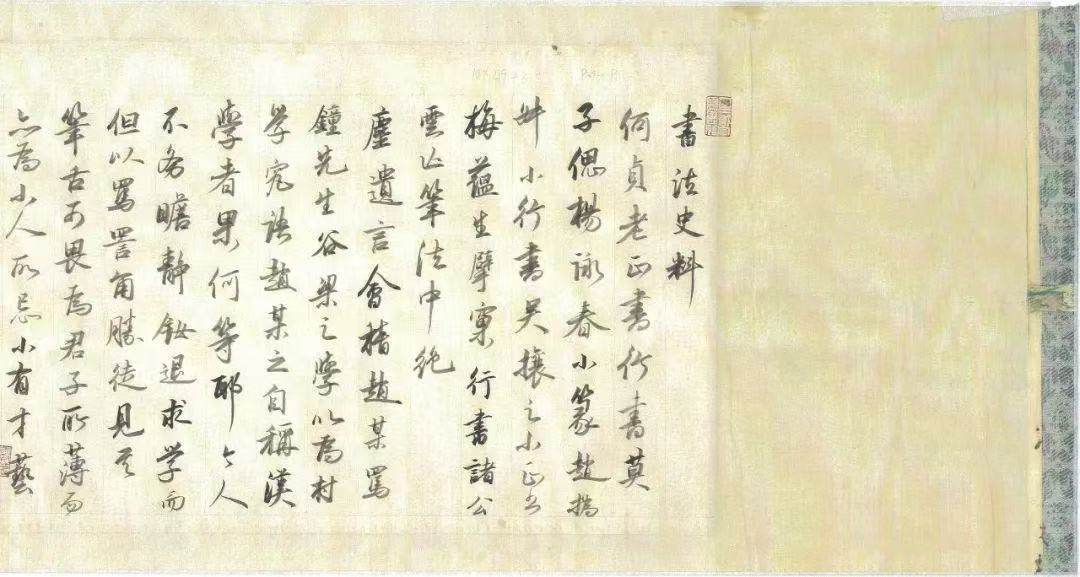 書法史料
何貞老正書行書莫
子偲楊詠春小篆趙撝
叔小行書吳攘之小正書
梅蘊生擘窠行書諸公
雲亡筆法中絕
塵遺言會稽趙某罵
鐘先生谷梁之學以為村
学究語趙某之自稱漢
學者果何等耶今人
不务瞻静欿退求学而
但以罵詈角勝徒見其
筆舌可畏為君子所薄而
亦為小人所忌小有才藝